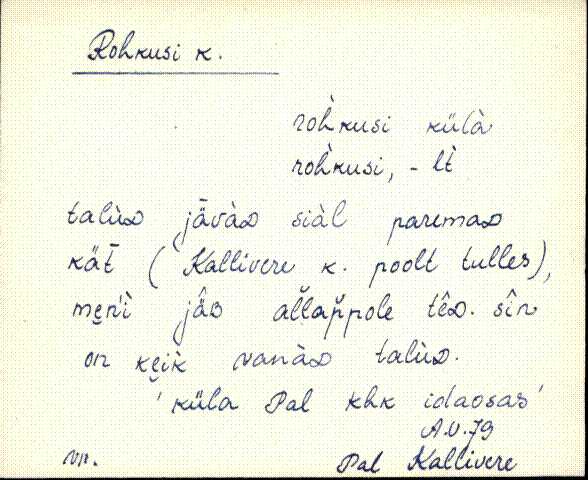 Rohkusi k.
roh̀kusi külà
roh̀kusi, - lt̀
talùᴅ jāvàᴅ siàl paremaᴅ
kät̄ ( Kallivere k. poolt tulles),
mẹnì jâʙ aĭĭap̆pole têᴅ. sîn
on kẹik̀ vanàᴅ talùᴅ.
'küla Pal khk idaosas'
A.V.79
Pal Kallivere